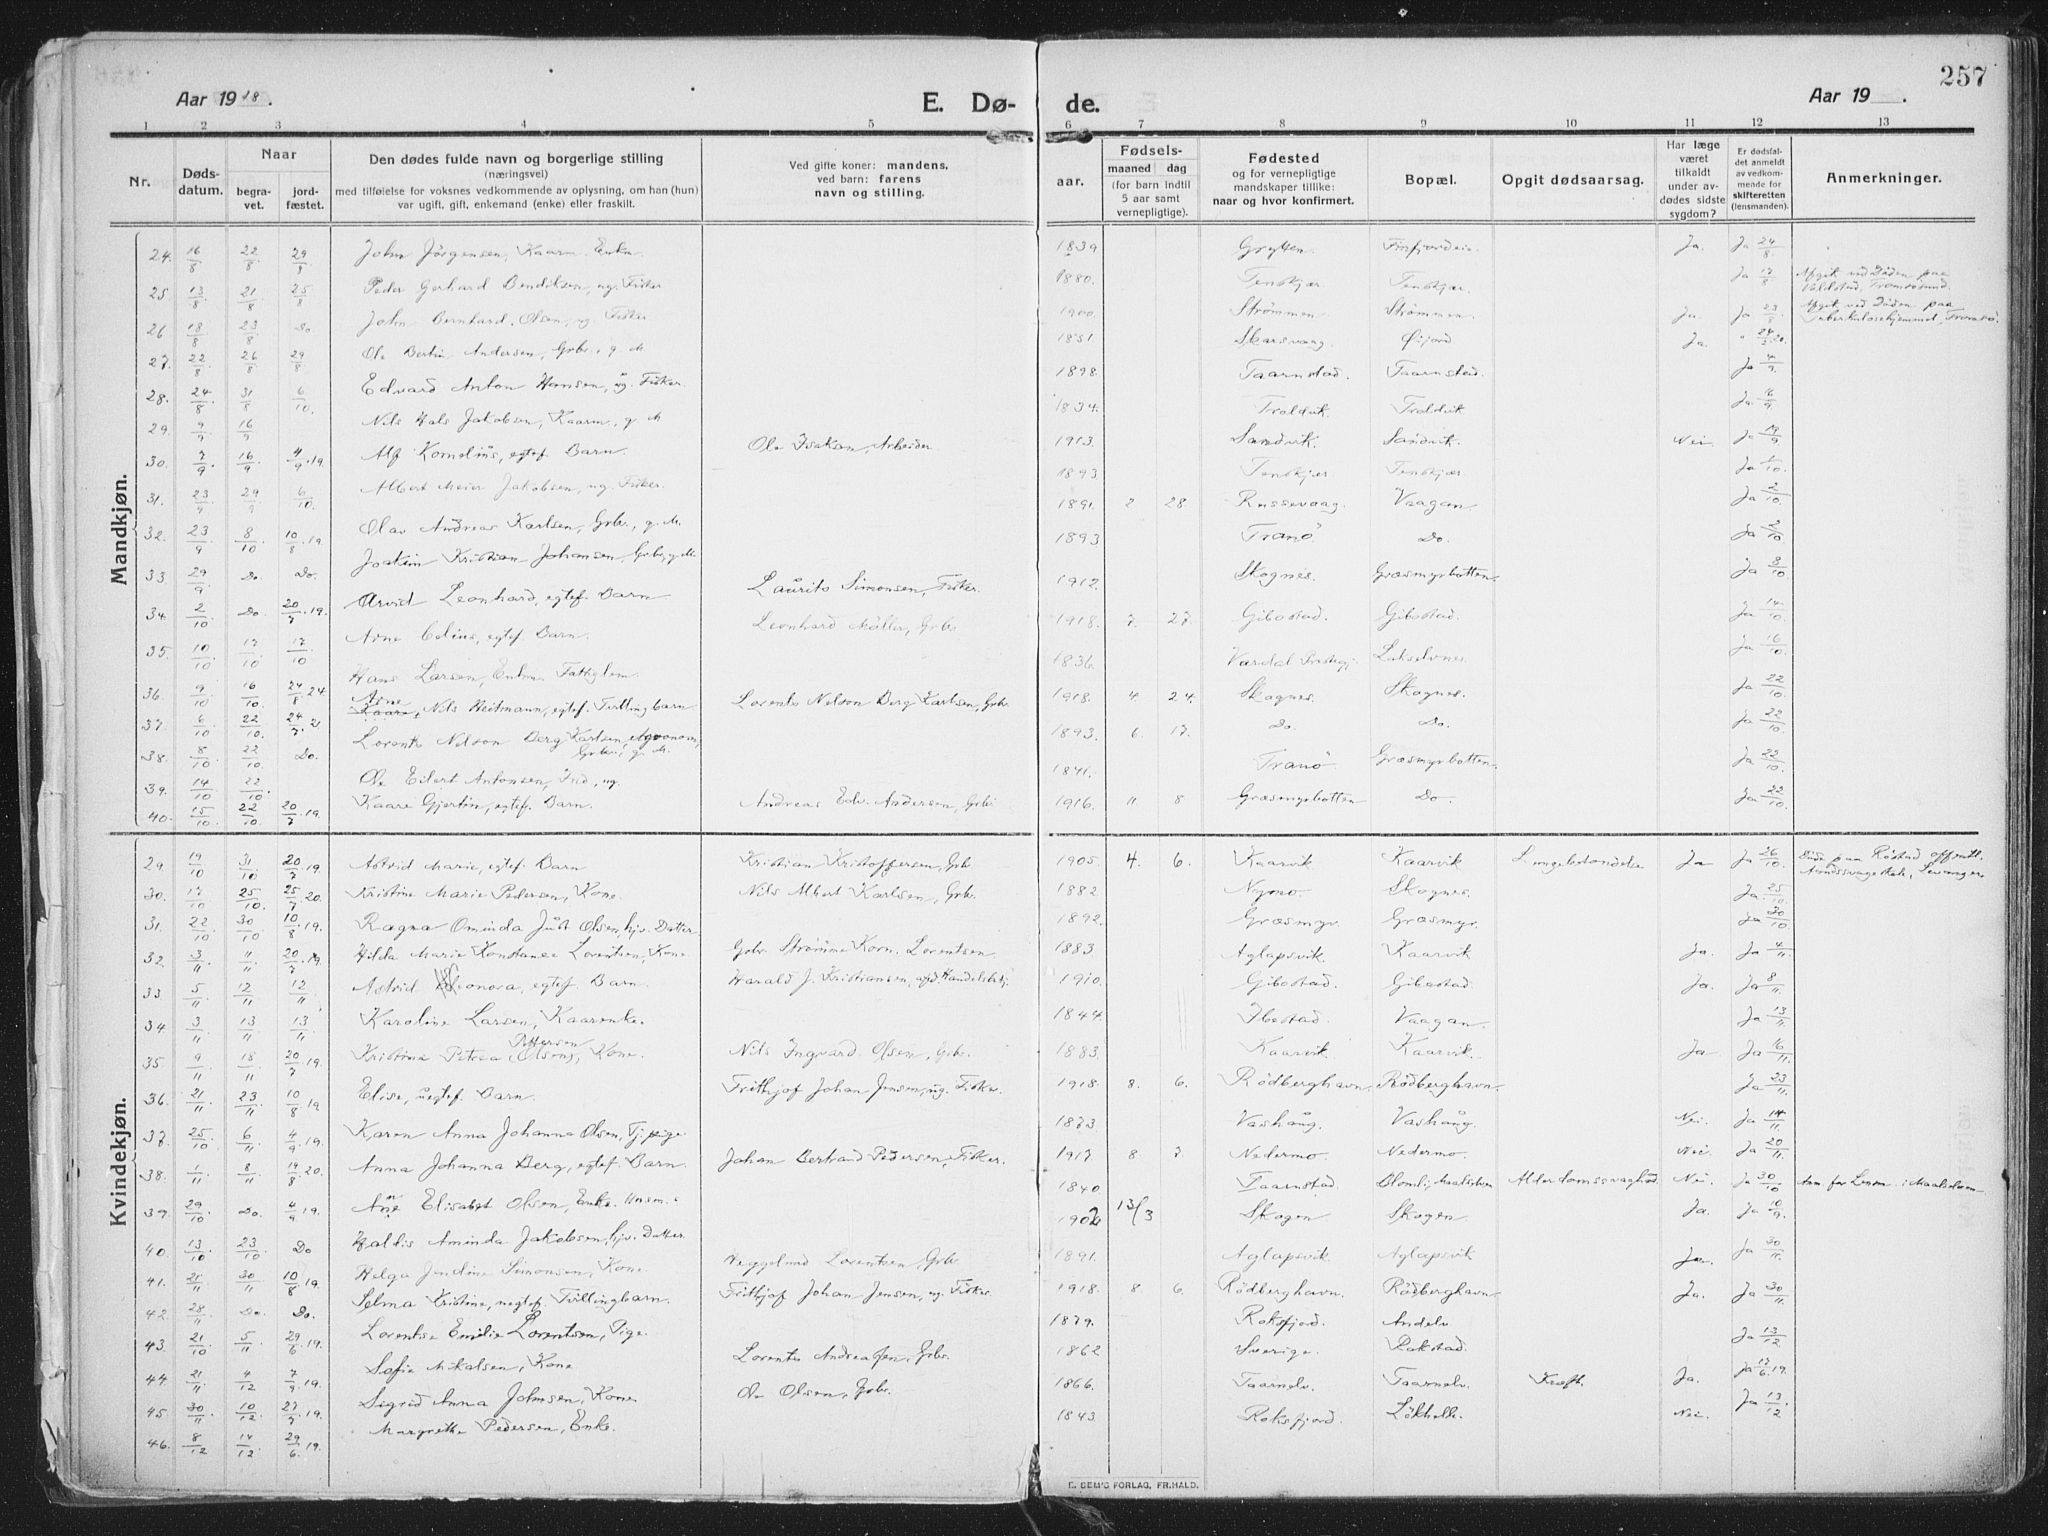 257
Aar 1918.
E. Dø-
de.
Aar 19 .
1 2 3 4 5 6 7 8 9 10 11 12 13
Nr.
Døds-
datum.
Naar
begra-
vet.
jord-
fæstet.
Den dødes fulde navn og borgerlige stilling
(næringsvei)
med tilføielse for voksnes vedkommende av oplysning, om han (hun)
var ugift, gift, enkemand (enke) eller fraskilt.
Ved gifte koner: mandens,
ved barn: farens
navn og stilling.
aar.
Fødsels-
maaned dag
(for barn indtil
5 aar samt
vernepligtige).
Fødested
og for vernepligtige
mandskaper tillike:
naar og hvor konfirmert.
Bopæl.
Opgit dødsaarsag.
Har læge
været
tilkaldt
under av-
dødes sidste
sygdom?
Er dødsfal-
det anmeldt
av vedkom-
mende for
skifteretten
(lensmanden).
Anmerkninger.
Mandkjøn.
24. 16/8 22/8 29/8 John Jörgensen, Kaarm. Enkm 1839 Grytten Finfjordeid Ja. Ja 24/8
25. 13/8 21/8 25/8 Peder Gerhard Bendiksen, ug. Fisker 1880. Tenskjær Tenskjær. Ja 17/8 Afgik ved Döden paa Valdstad, Tromsösund.
26 18/8 23/8 Do John Bernhard Olsen, ug. Fisker 1900. Strömmen Strømmen Ja. Ja 23/8 Afgik ved Döden paa Tuberkulosehjemmet, Tromsö.
27. 22/8 26/8 29/8 Ole Bertin Andersen, Grbr., g. M. 1851 Skarsvaag. Øijord Ja. " 24/2 20.
28. 24/8 31/8 6/10. Edvard Anton Hansen, ug. Fisker. 1898. Taarnstad. Taarnstad. Ja 4/9.
29. 9/9 16/9 Nils Hals Jakobsen, Kaarm., g. M 1834. Troldvik Troldvik Ja. 16/9
30. 7/9 16/9. 4/9.19. Alf Kornelius, egtef. Barn. Ole Isaksen, Arbeider 1913. Sandvik. Sandvik. Nei. Ja 19/9
31. 23/9 29/9 6/10. Albert Meier Jakobsen, ug. Fisker. 1893 Tenskjer Tenskjær. Ja 2/10.
32. 23/9 8/10 10/8.19 Olav Andreas Karlsen, Grbr., g. M. 1891. 2 28. Russevaag. Vaagan. Ja 2/10.
33 29/9 Do. Do. Joakim Kristian Johansen, Grbr, g. M. 1893 Tranö Do. Ja 2/10
34. 2/10 Do. 20/7.19. Arvid Leonhard, egtef. Barn Laurits Simonsen, Fisker. 1912. Skognes. Græsmyrbotten. Ja 8/10
35. 10/10 17/10. 17/10 Arne Edins, egtef. Barn. Leonhard Möller, Grbr 1918. 7. 27. Gibostad. Gibostad. Ja 14/10.
36. 9/10 16/10. 24/8 24 Hans Larsen, Enkm. Fattiglem 1836. Vardal Prestegj. Lakselvnes. Ja 16/10.
37. 6/10 22/10. 24/7.21 Arne Kaare, Nils Heitmann, egtef. Tvillingbarn. Lorents Nelson Berg Karlsen, Grbr. 1918. 4. 24. Skognes. Skognes. Ja 22/10.
38. 8/10 22/10. Do. Lorents Nelson Berg Karlsen, Agronom, Grbr., g. M. 1893. 6. 17. Do. Do. Ja 22/10.
39. 14/10 22/10. Ole Eilert Antonsen, Ind., ug. 1841. Tranö. Græsmyrbotten. Ja 22/10.
40. 15/10. 22/10. 20/7.19. Kaare Gjertin, egtef. Barn. Andreas Edv. Andersen, Grbr 1916. 11. 8 Græsmyrbotten Do. Ja 22/10.
Kvindekjøn.
29 19/10 31/10 20/7.19. Astrid Marie, egtef. Barn Kristian Kristoffersen, Grb 1905. 4. 6. Kaarvik Kaarvik Lungebetændelse Ja Ja 26/10. Döde paa Röstad offentl. Aandssvageskole, Levanger.
30. 17/10 25/10. 25/7.20. Kristine Marie Pedersen, Kone Nils Albert Karlsen, Grbr. 1882 Nymo Skognes. Ja. 25/10.
31. 22/10 30/10 10/8.19. Ragna Ominda Just Olsen, hjv. Datter. 1892. Græsmyr. Græsmyr. Ja 30/10.
32. 3/11 11/11. 20/7.19 Hilda Marie Konstanse Lorentsen, Kone Gbr. Strømme Korn. Lorentsen 1883 Aglapsvik Kaarvik Ja. Ja 4/11.
33. 5/11 12/11 12/11 Astrid Eleonora, egtef. Barn. Harald J. Kristiansen, Handelsbtj. 1910. Gibostad. Gibostad. Ja. Ja 8/11.
34 3/11 13/11. 13/11. Karoline Larsen, Kaarenke. 1844. Ibestad. Vaagan. Ja 13/11
35. 9/11 18/11. 20/7.19. Kristine Petrea Pettersen (Olsen), Kone. Nils Ingvard Olsen, Grbr. 1883. Kaarvik Kaarvik. Ja Ja 16/11.
36. 21/11 23/11 10/8.19 Elise, uegtef. Barn. Frithjof Johan Jensen, ug. Fisker. 1918. 8. 6. Rödberghavn. Rödberghavn. Ja 23/11.
37. 25/10. 6/11. 4/9.19. Karen Anna Johanna Olsen, Tj. pige. 1873 Vashaug. Vashaug. Nei. Ja 14/11.
38. 1/11 8/11. 19/8.20. Anna Johanna Berg, egtef. Barn. Johan Bertrand Pedersen, Fisker. 1917. 8 7. Nedermo. Nedermo. Nei. Ja 20/11.
39. 29/10 Do. 4/9.19. Ane Elisabet Olsen, Enke. Husm. 1840 Taarnstad. Blomli, Maalselven Alderdomssvaghed Nei. Ja 30/10 Anm. for Lensm. i Maalselven
40. 13/10 23/10. Do Haldis Aminda Jakobsen, hjv. Datter. 1902 13/3 Skogen Skogen. Ja. Ja 10/9.
41. 21/11 30/11 10/8.19. Helga Jendine Simonsen, Kone Heggelund Lorentsen, Grbr. 1891. Aglapsvik Aglapsvik Ja. Ja 30/11.
42. 28/11 Do. Do. Selma Kristine, uegtef. Tvillingbarn. Frithjof Johan Jensen, ug. Fisker. 1918. 8. 6. Rödberghavn. Rödberghavn Ja. Ja 30/11.
43. 21/10 5/11 29/6.19. Lorentse Emilie Lorentsen, Pige. 1879. Roksfjord. Andelv Ja 13/12
44. 21/11 4/12 7/9.19. Sofie Mikalsen, Kone Lorents Andreasen, Grbr. 1862 Sverige. Bakstad. Ja 17/6 19.
45. 30/11 10/12 27/7.19. Sigrid Anna Johnsen, Kone Ole Olsen, Grbr. 1866. Taarnelv. Taarnelv. Kræft. Ja. Ja 13/12
46. 8/12 14/12 29/6.19. Margrethe Pedersen, Enke. 1843 Roksfjord. Lökholle. Nei.
E. SEM'S FORLAG, FR.HALD.